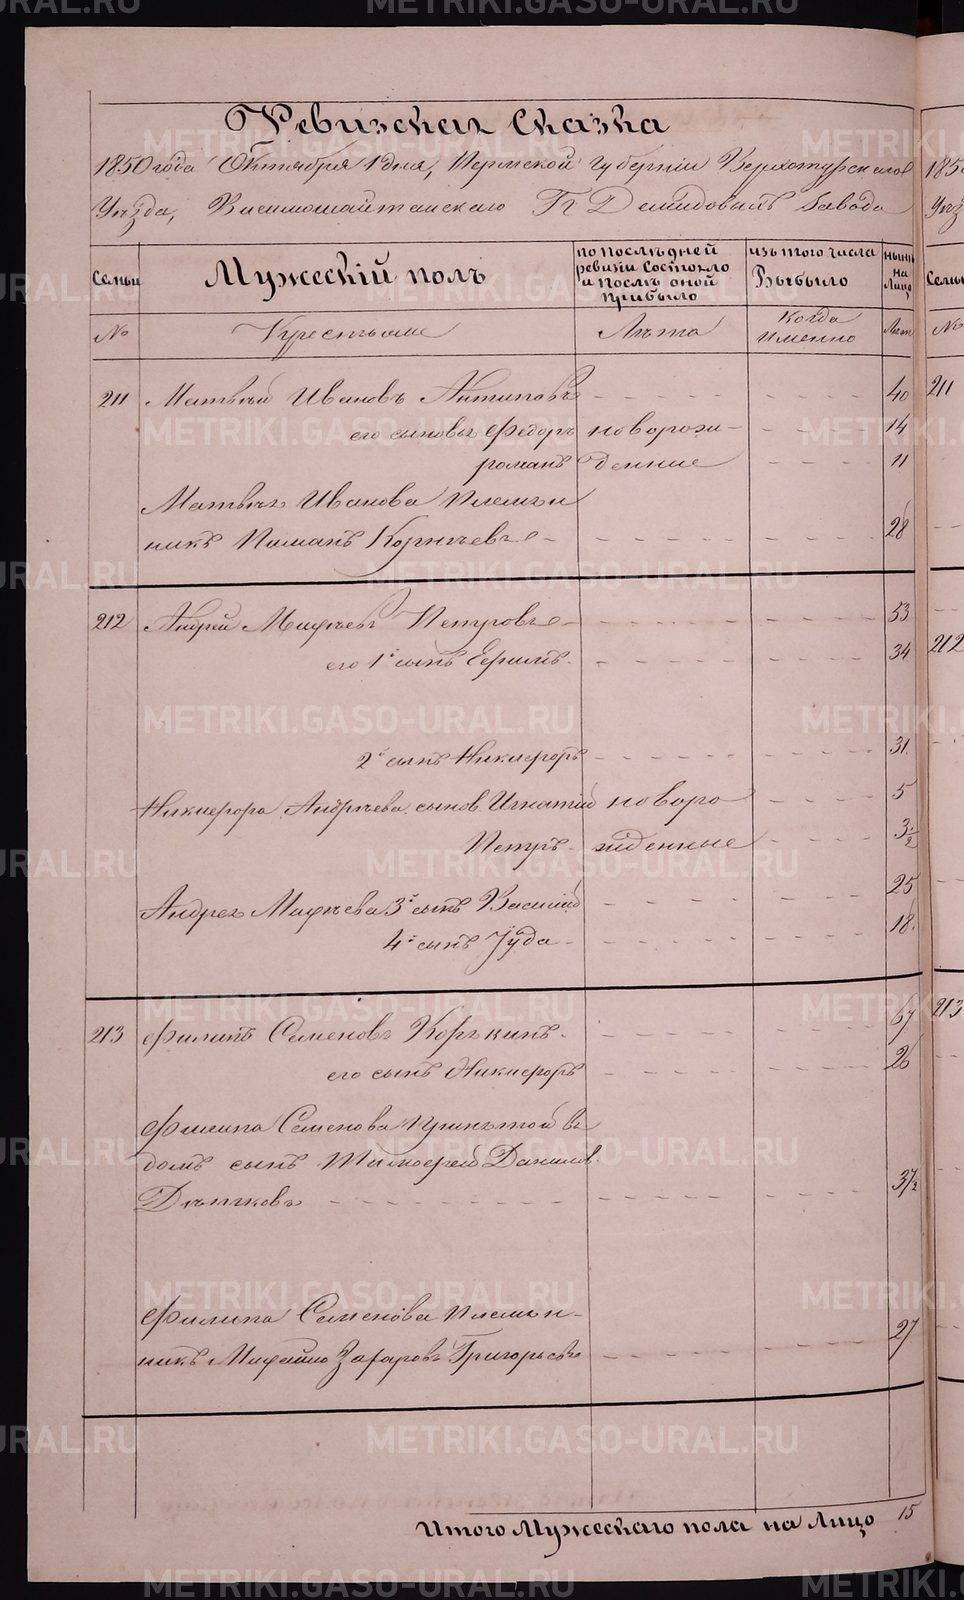 Ревизская Сказка
1850 года Октября 1 дня, Пермской губернии Верхотурскаго
Уѣзда, Висимошайтанскаго Гг Демидовыхъ завода
Семьи
Мужескій полъ
по послѣдней
ревизіи Состояло
и послѣ оной
прибыло
изъ того числа
Выбыло
ныне
на
Лицо
№
Крестьяне
Лѣта
Когда
Именно
Лѣт
211 Матвѣй Ивановъ Антиповъ - - - - 40
его сыновья Федоръ новорож- - - - 14
романъ денные - - - 11
Матвѣя Иванова Племян
никъ Пиманъ Корнѣевъ - - - - 28
212 Андрей Михѣевъ Петровъ - - - - 53
его 1й сынъ Ефимъ - - - - 34
2й сынъ Никифоръ - - - - 31
Никифора Андрѣева сынов Игнатій новоро - - - 5
Петръ - жденные - - - 3½
Андрея Михѣева 3й сынъ Василій - - - - 25
4й сынъ Іуда - - - - 18
213 Филипъ Семеновъ Корькинъ - - - - 67
его сынъ Никифоръ - - - - 26
Филипа Семенова принятой въ
домъ сынъ Тимофей Данилов
- - - - 37½
Филипа Семенова Племян-
никъ Михайло Захаровъ Григорьевъ - - - - 27
Итого Мужескаго пола на Лицо 15
1850
Уѣз
Семьи
№
211
212
213
METRIKI.GASO-URAL.RU